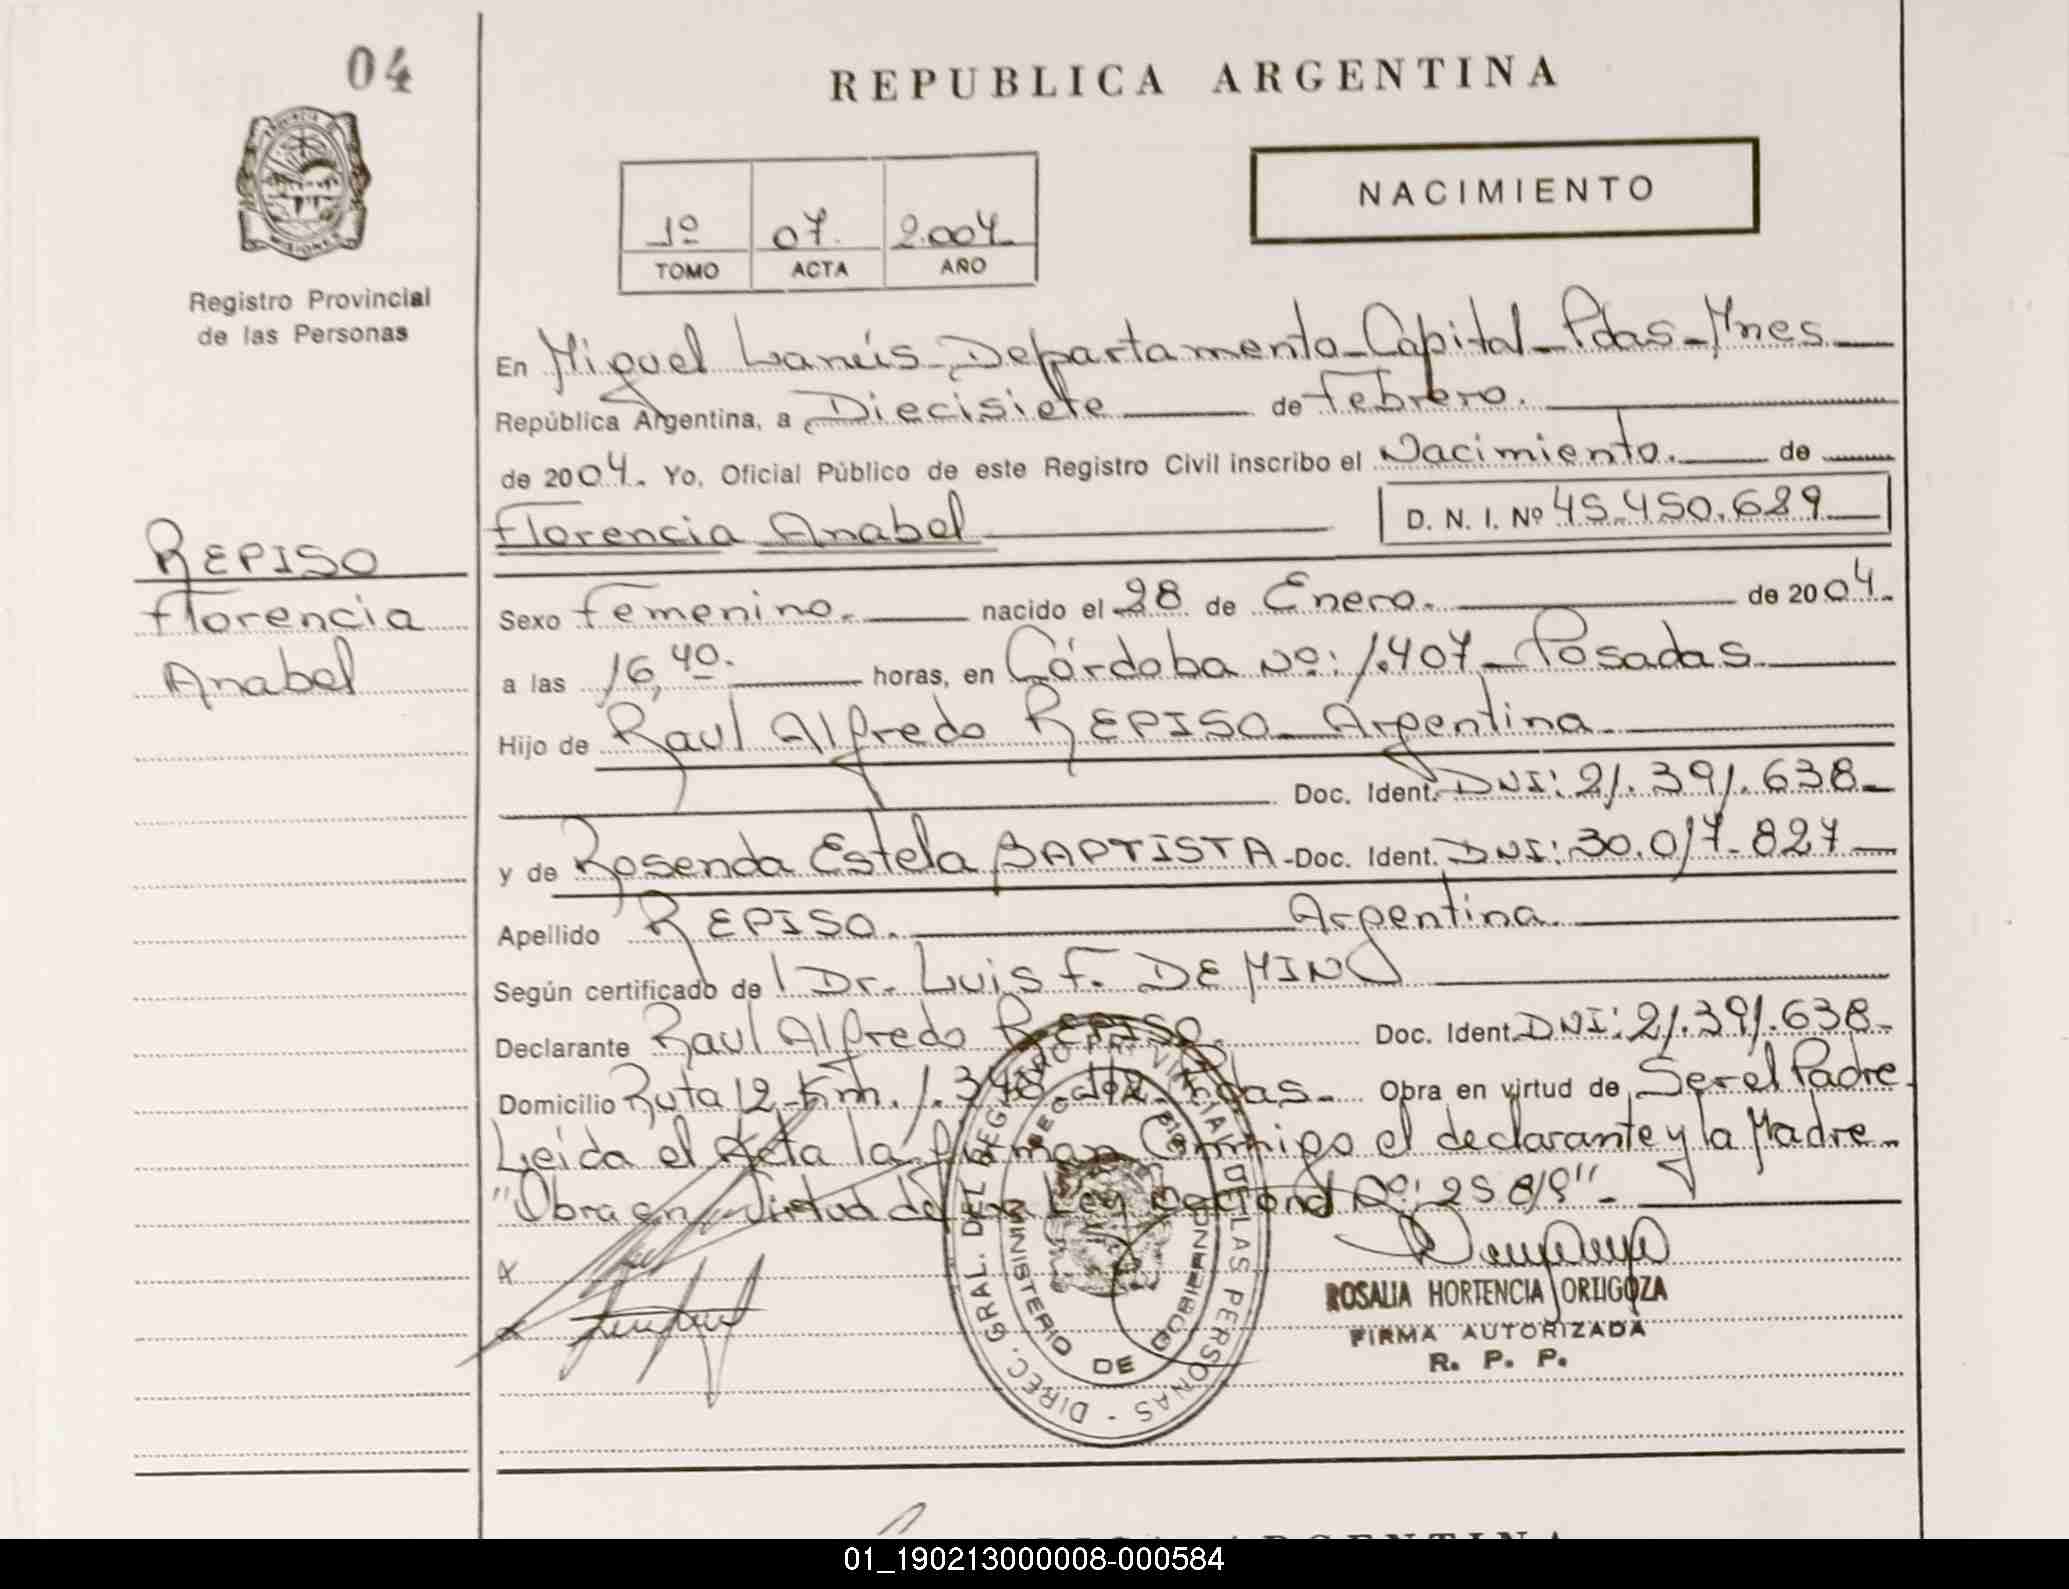 04
REPUBLICA ARGENTINA
PROVINCIA DE
MISIONES
Registro Provincial
de las Personas
NACIMIENTO
1º 07 2.004
TOMO ACTA AÑO
En Miguel Lanús-Departamento-Capital-Pdas-Mnes
República Argentina, a Diecisiete de Febrero.
de 2004. Yo, Oficial Público de este Registro Civil inscribo el Nacimiento. de
Florencia Anabel D. N. I. Nº 45.450.689
REPISO
Florencia
Anabel
Sexo Femenino. nacido el 28 de Enero. de 2004.
a las 16,40. horas, en Córdoba Nº: 1.407-Posadas
Hijo de Raul Alfredo REPISO-Argentina
Doc. Ident. DNI: 21.391.638-
y de Rosenda Estela BAPTISTA-Doc. Ident. DNI: 30.017.827
Apellido REPISO. Argentina
Según certificado de Dr. Luis F. DEMINO
Declarante Raul Alfredo REPISO. Doc. Ident. DNI: 21.391.638-
Domicilio Ruta 12-Km. 1.348 Pdas-. Obra en virtud de Ser el Padre
Leida el Acta la firman Conmigo el declarante y la Madre-
"Obra en Virtud de la Ley Nacional Nº:
DIREC. GRAL. DEL REGISTRO PROVINCIAL DE LAS PERSONAS -
MINISTERIO DE GOBIERNO
ROSALIA HORTENCIA ORTIGOZA
FIRMA AUTORIZADA
R. P. P.
01_190213000008-000584